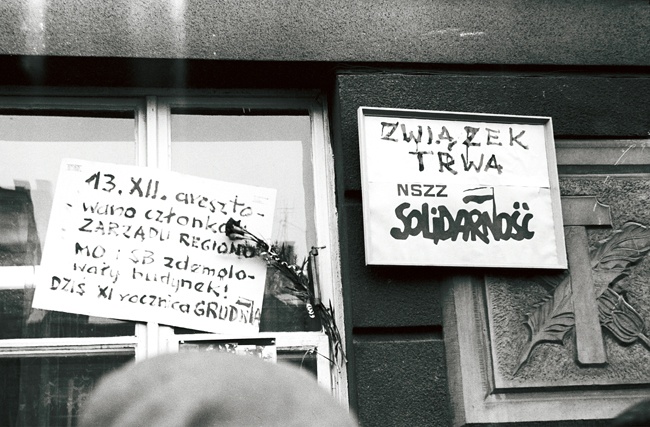 13. XII. areszto-
- wano członka
- ZARZĄDU REGIONU
MO i SB zdemolo-
wały budynek!
DZIŚ XI rocznica GRUDNIA
ZWIĄZEK
TRWA
NSZZ
SOLIDARNOŚĆ